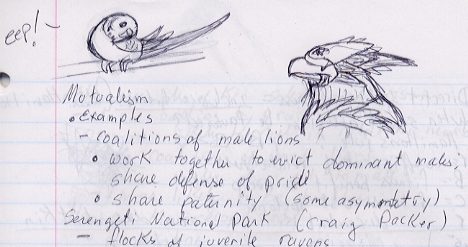 eep! -
Mutualism
• examples
- coalitions of male lions
• work together to evict dominant males,
share defense of pride
• share paternity (some asymmetry)
Serengeti National Park (Craig Packer)
- flocks of juvenile ravens